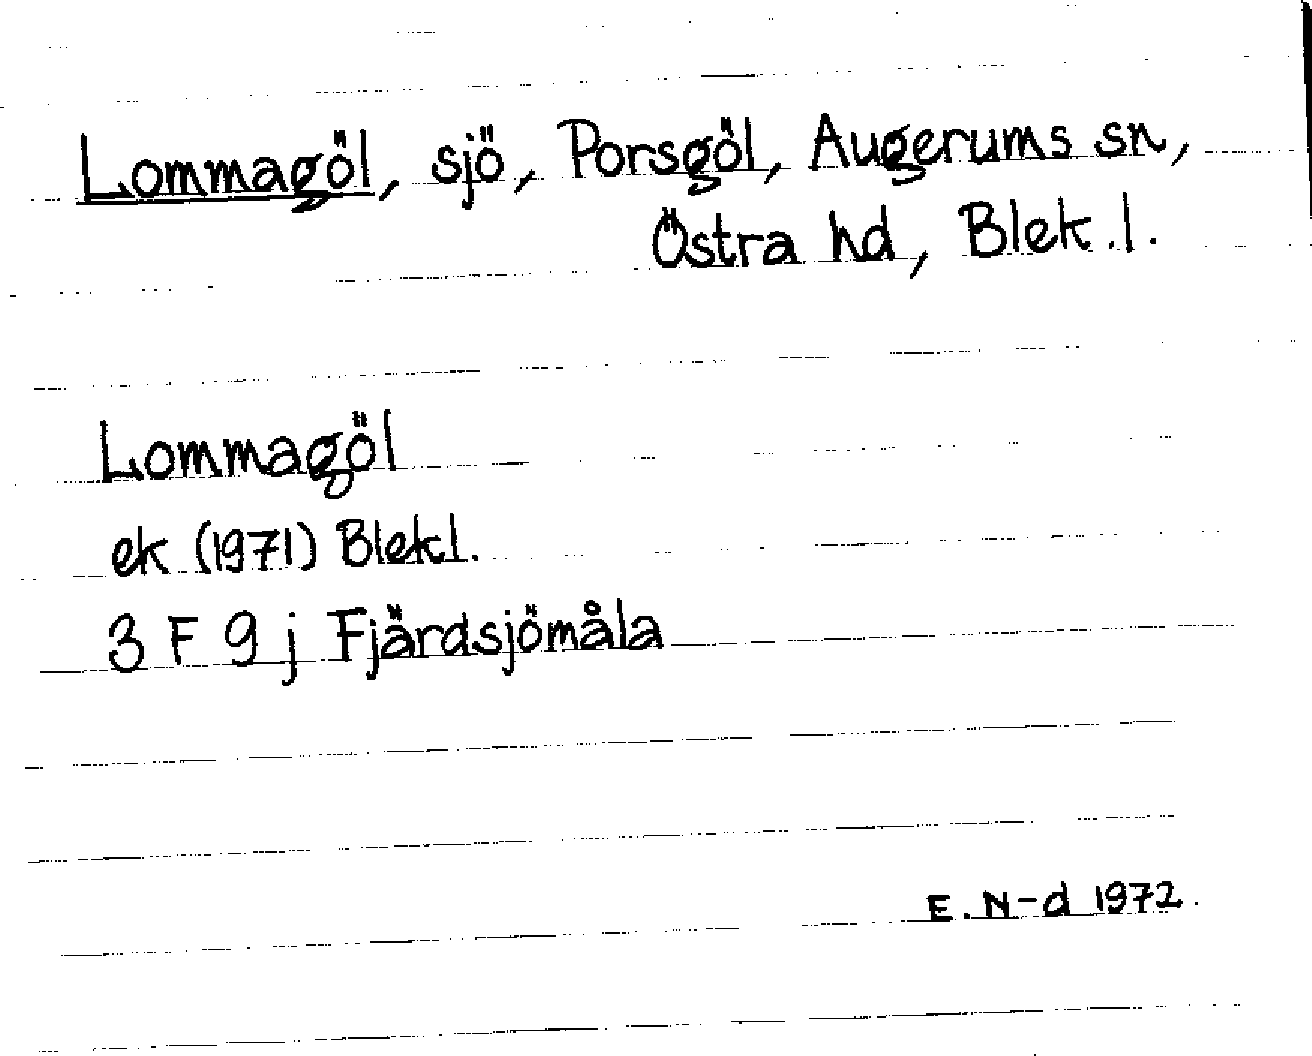 Lommagöl, sjö, Porsgöl, Augerums sn,
Östra hd, Blek. l.
Lommagöl
ek (1971) Blekl.
3 F 9 j Fjärdsjömåla
E. N-d 1972.